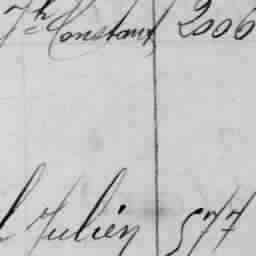 Th Constant 2006
l Julien 577